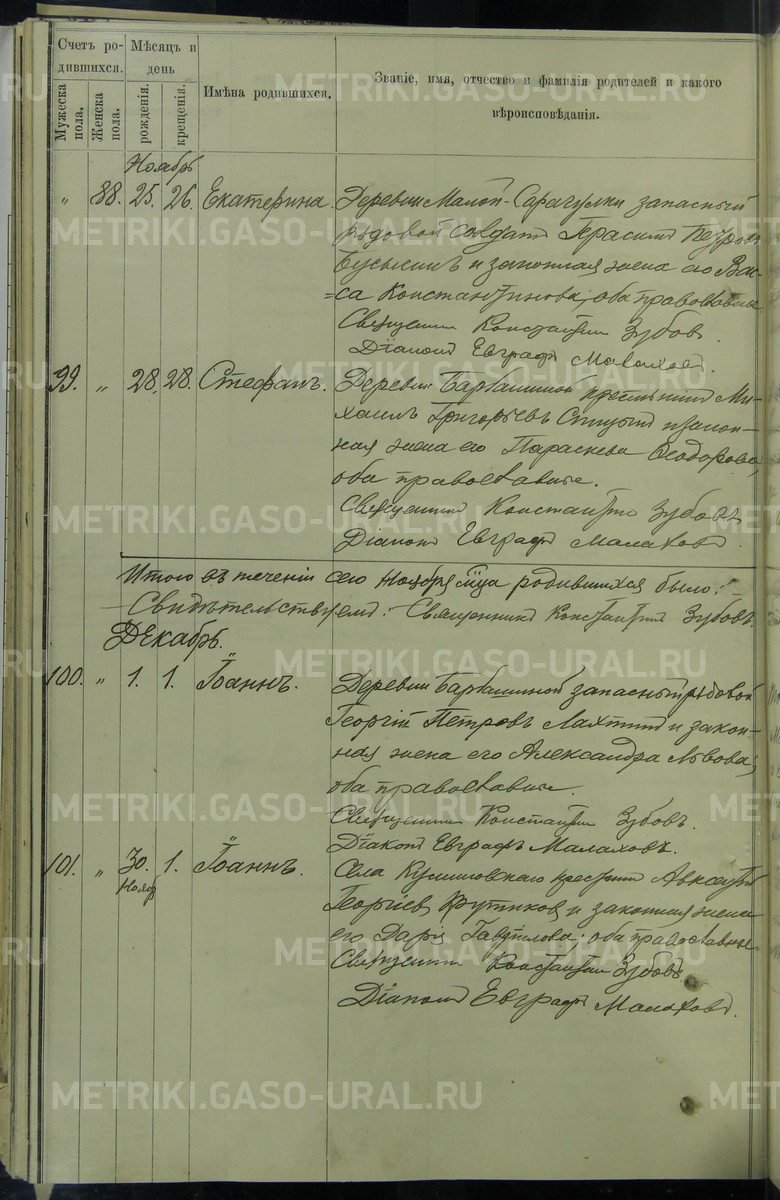 Счетъ ро-
дившихся.
Мѣсяцъ и
день
Имѣна родившихся.
Званіе, имя, отчество и фамилія родителей и какого
вѣроисповѣданія.
Мужеска
пола.
Женска
пола.
рожденія.
крещенія.
Ноябрь
„ 88. 25. 26. Екатерина. Деревни Малой-Сарагулки запасный
рядовой солдат Герасимъ Петровъ
и законная жена его Вас-
=са Константинова, оба православные
Священник Константин Зубов.
Діаконъ Евграфъ Малахов.
99. „ 28. 28. Стефанъ. Деревни Барбашиной крестьянинъ Ми-
хаилъ Григорьевъ и закон-
ная жена его Параскева Феодорова,
оба православные.
Священникъ Константинъ Зубовъ
Діаконъ Евграфъ Малаховъ.
Итого въ теченіи сего Ноября мѣсяца родившихся было: —
Свидѣтельствуемъ: Священникъ Константинъ Зубовъ.
Декабрь.
100. „ 1. 1. Іоаннъ. Деревни Барбашиной запасный рядовой
Георгій Петровъ Лахтинъ и закон-
ная жена его Александра Львова,
оба православные.
Священникъ Константин Зубовъ.
Діаконъ Евграфъ Малаховъ.
101. „ 30. 1. Іоаннъ. Села крестьянинъ Авксентій
Нояб
Георгіев и законная жена
его Дарія Гаврилова; оба православные
Священникъ Константин Зубовъ
Діаконъ Евграфъ Малаховъ.
METRIKI.GASO-URAL.RU